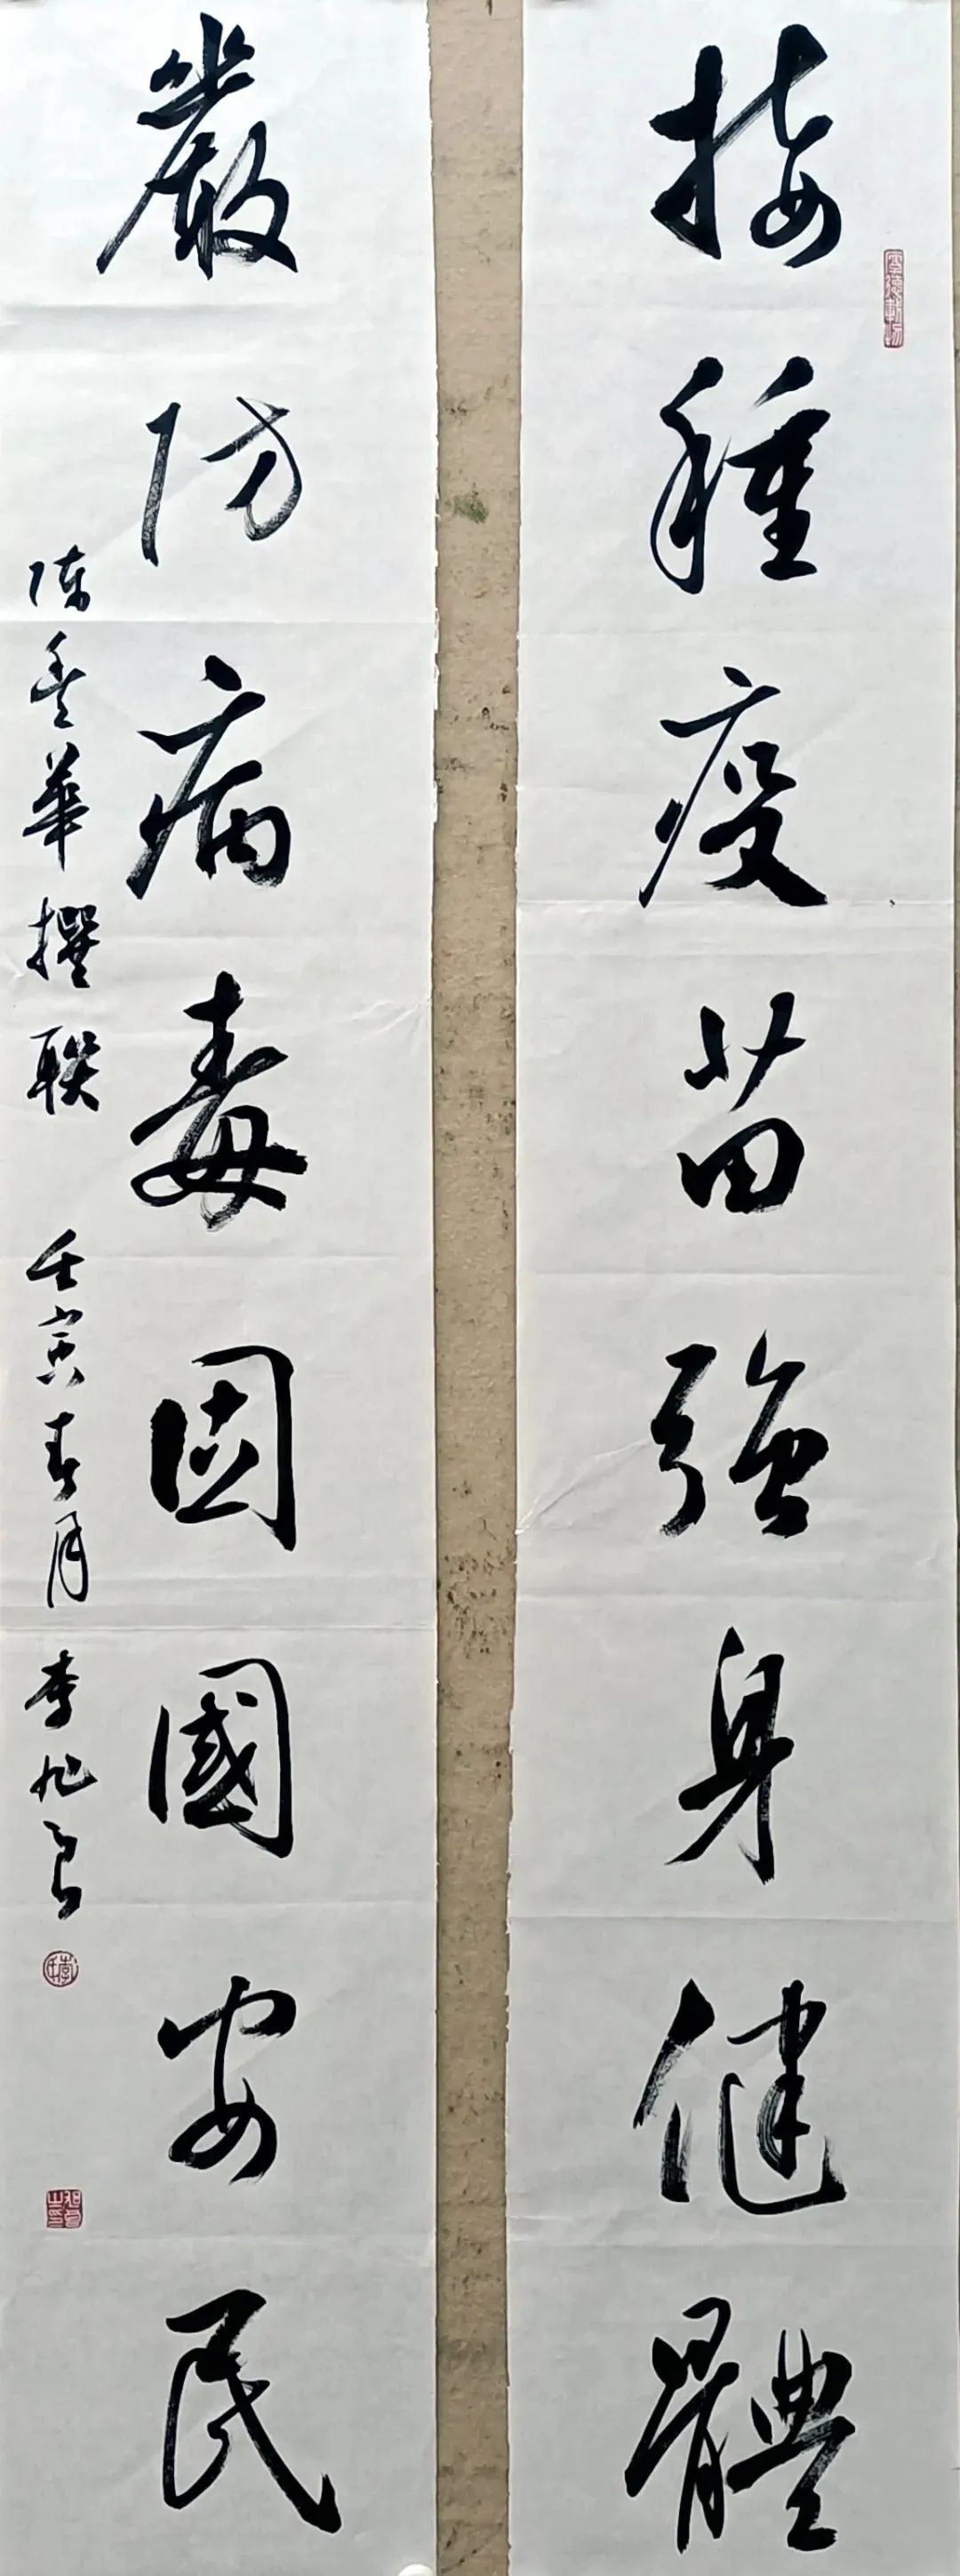 接種疫苗強身健體
嚴防病毒固國安民
陳愛華撰聯 壬寅春月 李旭良